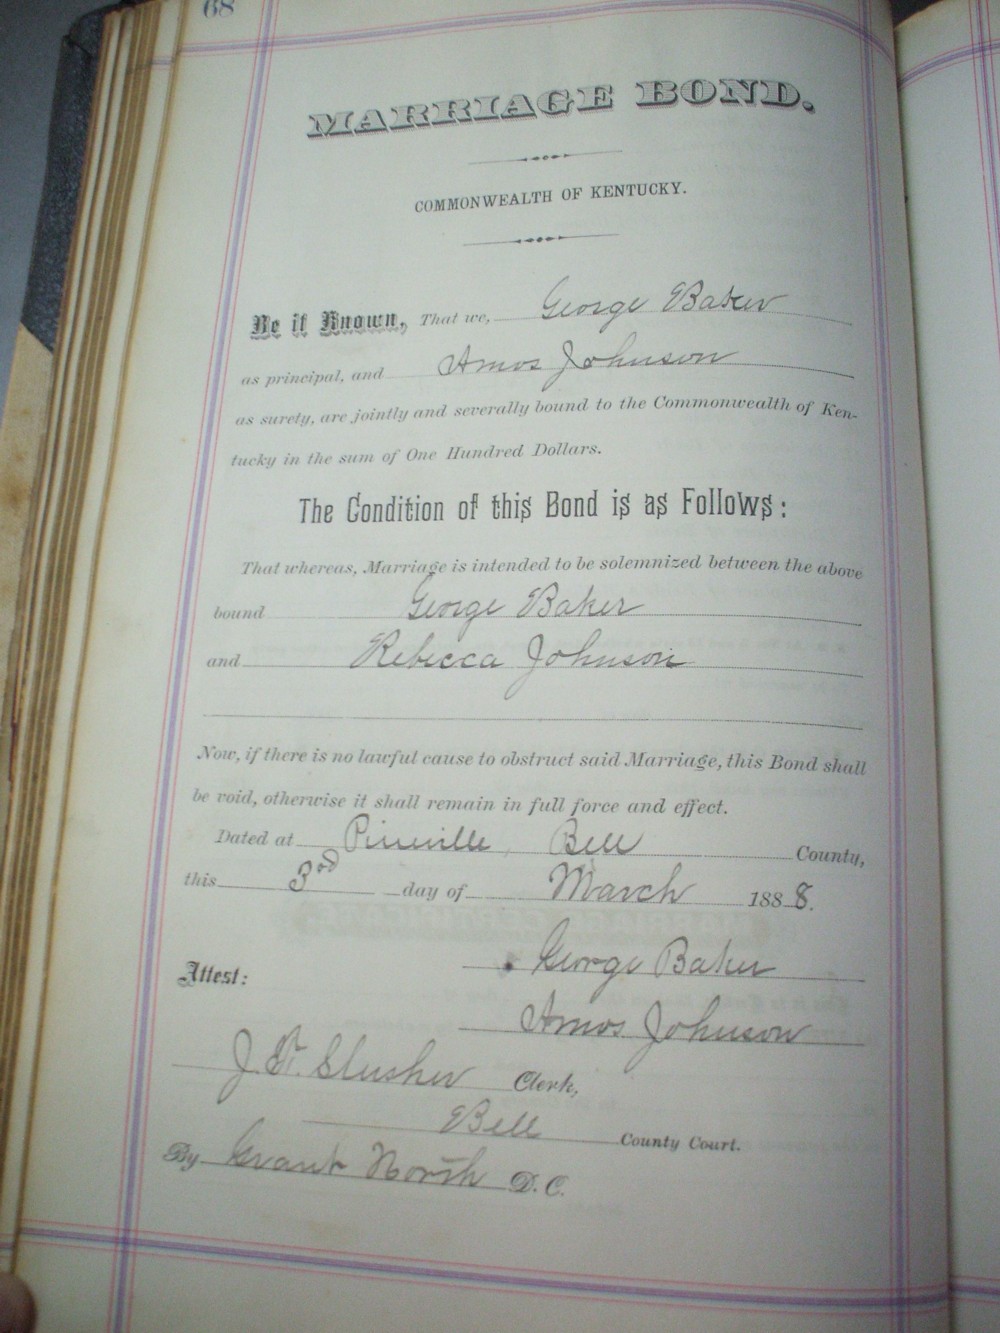 68
MARRIAGE BOND.
COMMONWEALTH OF KENTUCKY.
Be it Known, That we, George Baker
as principal, and Amos Johnson
as surety, are jointly and severally bound to the Commonwealth of Ken-
tucky in the sum of One Hundred Dollars.
The Condition of this Bond is as Follows:
That whereas, Marriage is intended to be solemnized between the above
bound George Baker
and Rebecca Johnson
Now, if there is no lawful cause to obstruct said Marriage, this Bond shall
be void, otherwise it shall remain in full force and effect.
Dated at Pineville, Bell County,
this 3rd day of March 1888.
George Baker
Attest:
Amos Johnson
J. Slusher Clerk,
Bell County Court.
By Grant North D. C.